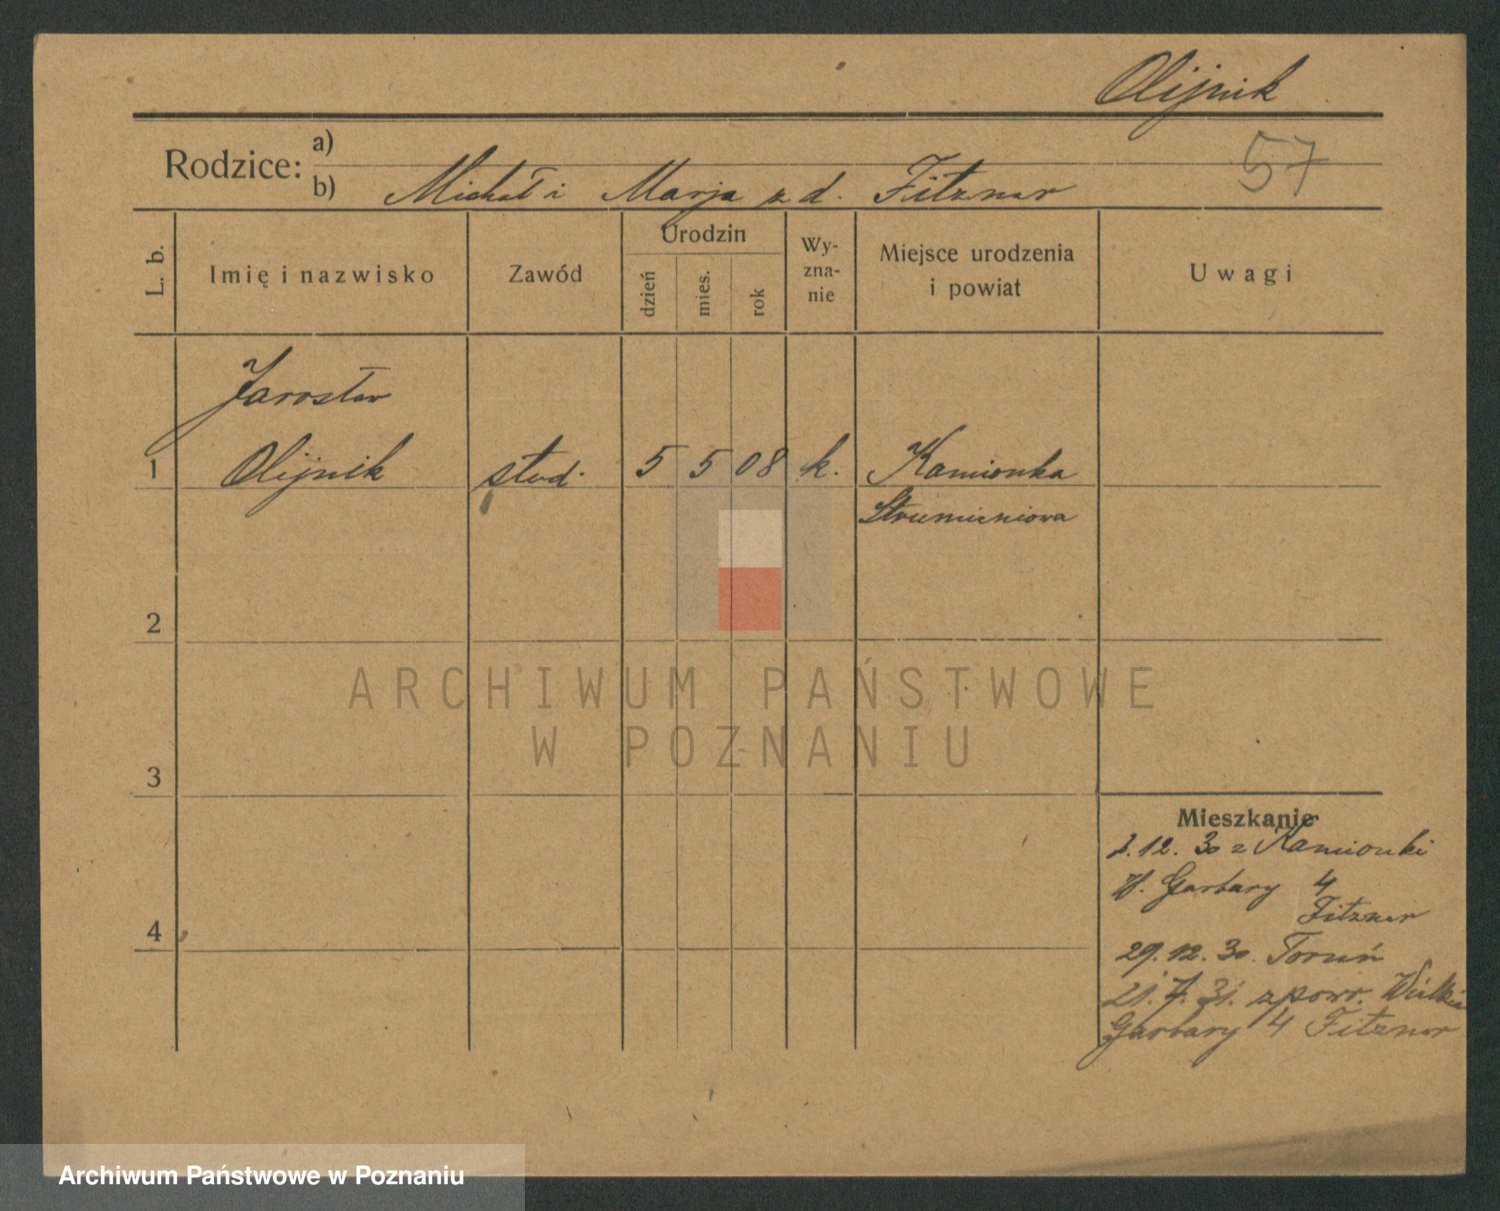 Olijnik
57
Rodzice: a)
b) Michał i Marja z d. Fitzner
L. b.
Imię i nazwisko
Zawód
Urodzin
dzień
mies.
rok
Wy-
zna-
nie
Miejsce urodzenia
i powiat
Uwagi
Jarosław
1 Olijnik stud. 5 5 08 k. Kamionka
Strumieniowa
2
3
4
ARCHIWUM PAŃSTWOWE
W POZNANIU
Mieszkanie
1.12. 30 z Kamionki
W. Garbary 4
Fitzner
29.12. 30. Toruń
21.7.31. z powr. Wielkie
Garbary 4 Fitzner
Archiwum Państwowe w Poznaniu